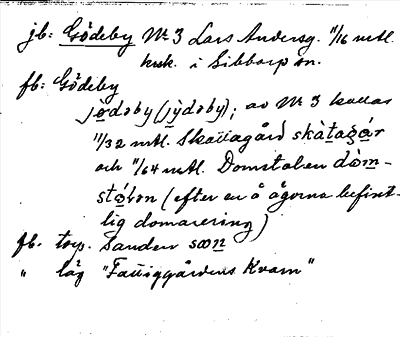 jb: Gödeby Nr 3 Lars Andersg. 11/16 mtl.
kuk. i Sibbarp sn.
fb: Gödeby
jødəby (jỳdəby); av Nr 3 kallas
11/32 mtl. Skattagård skàtagár
och 11/64 mtl. Domstolen dòm-
stólən (efter en å ägorna befint-
lig domarering)
fb. torp. Sanden
" låg "Fattiggårdens Kvarn"